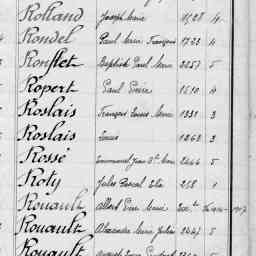 Rolland Joseph Marie 1528 4
Rondel Paul Marie François 1723 4
Ronflet Baptiste Paul Marie 2257 5
Ropert Paul Pierre 1510 4
Roslais François Louis Marie 1331 3
Roslais Louis 1263 3
Rossé Emmanuel Jean Bte Marie 2464 5
Roty Jules Pascal 258 1
Rouault Albert Pierre Marie
Rouault Alexandre Marie Julien 2447 5
Rouault